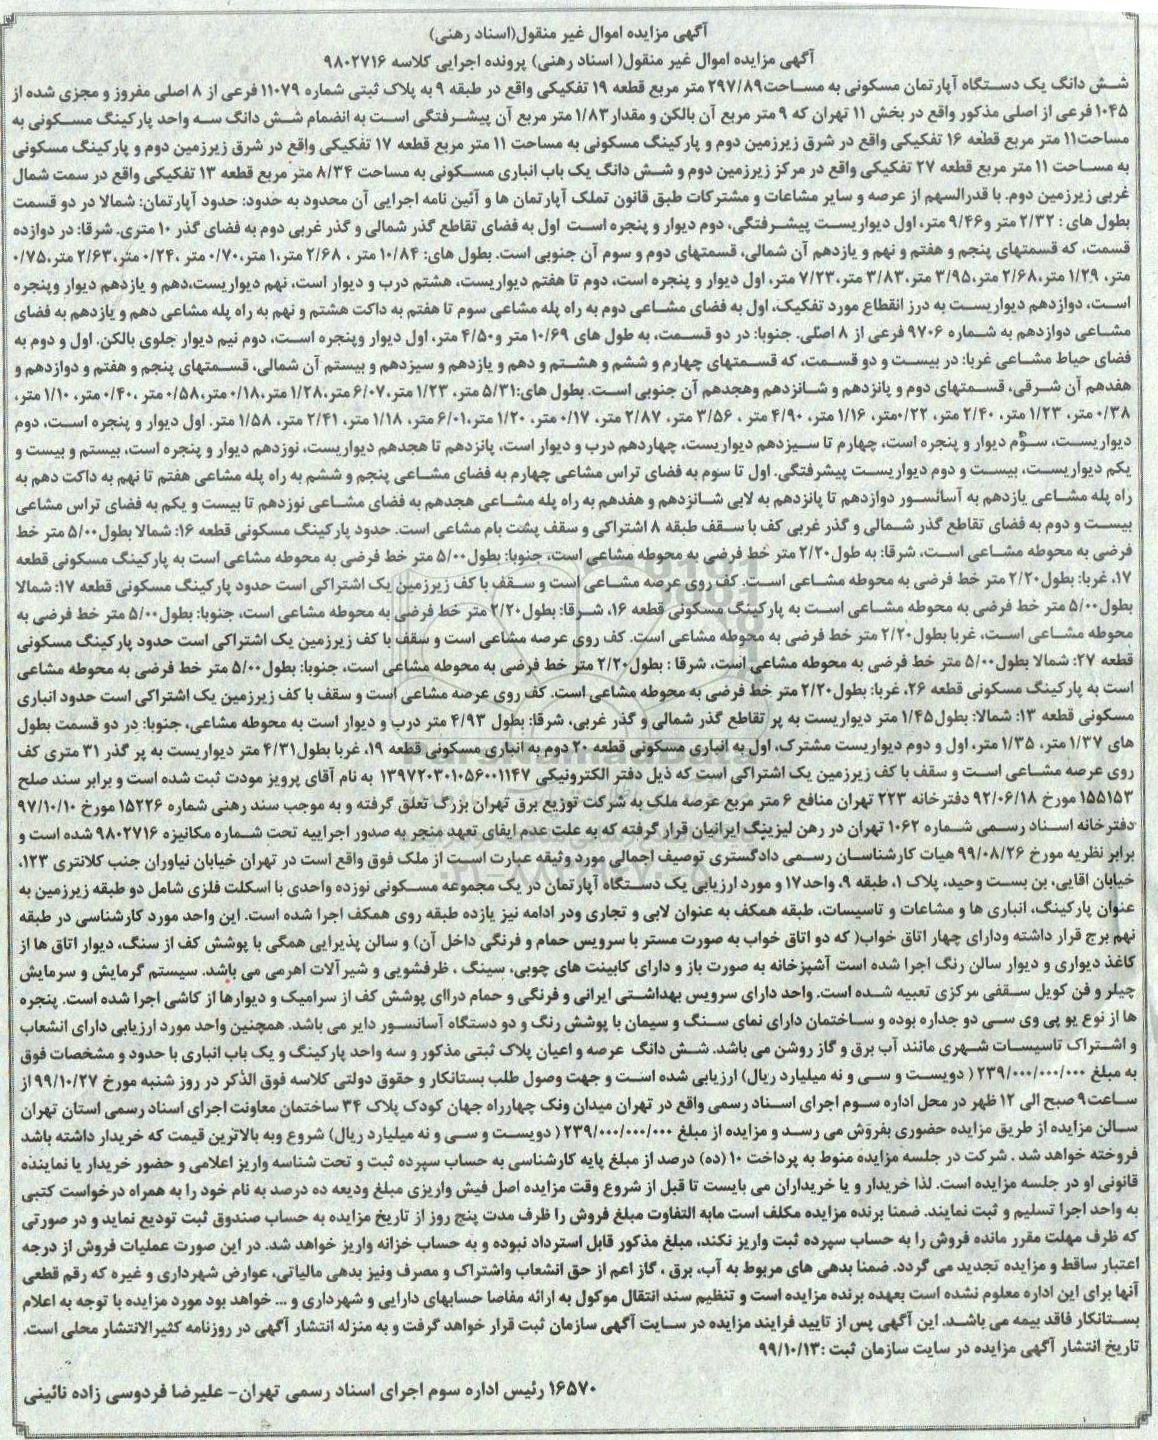 آگهی مزایده اموال غیر منقول(اسناد رهنی)
آگهی مزایده اموال غیر منقول( اسناد رهنی) پرونده اجرایی کلاسه ۹۸۰۲۷۱۶
شش دانگ یک دستگاه آپارتمان مسکونی به مساحت۲۹۷/۸۹ متر مربع قطعه ۱۹ تفکیکی واقع در طبقه ۹ به پلاک ثبتی شماره ۱۱۰۷۹ فرعی از ۸ اصلی مفروز و مجزی شده از
۱۰۴۵ فرعی از اصلی مذکور واقع در بخش ۱۱ تهران که ۹ متر مربع آن بالکن و مقدار ۱/۸۳ متر مربع آن پیشرفتگی است به انضمام شش دانگ سه واحد پارکینگ مسکونی به
مساحت۱۱ متر مربع قطعه ۱۶ تفکیکی واقع در شرق زیرزمین دوم و پارکینگ مسکونی به مساحت ۱۱ متر مربع قطعه ۱۷ تفکیکی واقع در شرق زیرزمین دوم و پارکینگ مسکونی
به مساحت ۱۱ متر مربع قطعه ۲۷ تفکیکی واقع در مرکز زیرزمین دوم و شش دانگ یک باب انباری مسکونی به مساحت ۸/۳۴ متر مربع قطعه ۱۳ تفکیکی واقع در سمت شمال
غربی زیرزمین دوم. با قدرالسهم از عرصه و سایر مشاعات و مشترکات طبق قانون تملک آپارتمان ها و آئین نامه اجرایی آن محدود به حدود: حدود آپارتمان: شمالا در دو قسمت
بطول های : ۲/۳۲ متر و۹/۴۶ متر، اول دیواریست پیشرفتگی، دوم دیوار و پنجره است اول به فضای تقاطع گذر شمالی و گذر غربی دوم به فضای گذر ۱۰ متری. شرقا: در دوازده
قسمت، که قسمتهای پنجم و هفتم و نهم و یازدهم آن شمالی، قسمتهای دوم و سوم آن جنوبی است. بطول های: ۱۰/۸۴ متر ، ۲/۶۸ متر،۱ متر،۰/۷۰ متر ،۰/۲۴ متر،۲/۶۳ متر،۰/۷۵
متر، ۱/۲۹ متر،۲/۶۸ متر،۳/۹۵ متر،۳/۸۳ متر،۷/۲۳ متر، اول دیوار و پنجره است، دوم تا هفتم دیواریست، هشتم درب و دیوار است، نهم دیواریست،دهم و یازدهم دیوار وپنجره
است، دوازدهم دیواریست به درز انقطاع مورد تفکیک، اول به فضای مشاعی دوم به راه پله مشاعی سوم تا هفتم به داکت هشتم و نهم به راه پله مشاعی دهم و یازدهم به فضای
مشاعی دوازدهم به شماره ۹۷۰۶ فرعی از ۸ اصلی. جنوبا: در دو قسمت، به طول های ۱۰/۶۹ متر و۴/۵۰ متر، اول دیوار وپنجره است، دوم نیم دیوار جلوی بالکن. اول و دوم به
فضای حیاط مشاعی غربا: در بیست و دو قسمت، که قسمتهای چهارم و ششم و هشتم و دهم و یازدهم و سیزدهم و بیستم آن شمالی، قسمتهای پنجم و هفتم و دوازدهم و
هفدهم آن شرقی، قسمتهای دوم و پانزدهم و شانزدهم وهجدهم آن جنوبی است. بطول های:۵/۳۱ متر، ۱/۲۳ متر،۶/۰۷ متر،۱/۲۸ متر،۰/۱۸ متر،۰/۵۸ متر ،۰/۴۰ متر، ۱/۱۰ متر،
۰/۳۸ متر، ۱/۲۳ متر، ۲/۴۰ متر، ۰/۲۲متر، ۱/۱۶ متر، ۴/۹۰ متر ، ۳/۵۶ متر، ۲/۸۷ متر، ۰/۱۷ متر، ۱/۲۰ متر،۶/۰۱ متر، ۱/۱۸ متر، ۲/۴۱ متر، ۱/۵۸ متر. اول دیوار و پنجره است، دوم
دیواریست، سوم دیوار و پنجره است، چهارم تا سیزدهم دیواریست، چهاردهم درب و دیوار است، پانزدهم تا هجدهم دیواریست، نوزدهم دیوار و پنجره است، بیستم و بیست و
یکم دیواریست، بیست و دوم دیواریست پیشرفتگی. اول تا سوم به فضای تراس مشاعی چهارم به فضای مشاعی پنجم و ششم به راه پله مشاعی هفتم تا نهم به داکت دهم به
راه پله مشاعی یازدهم به آسانسور دوازدهم تا پانزدهم به لابی شانزدهم و هفدهم به راه پله مشاعی هجدهم به فضای مشاعی نوزدهم تا بیست و یکم به فضای تراس مشاعی
بیست و دوم به فضای تقاطع گذر شمالی و گذر غربی کف با سقف طبقه ۸ اشتراکی و سقف پشت بام مشاعی است. حدود پارکینگ مسکونی قطعه ۱۶: شمالا بطول۵/۰۰ متر خط
فرضی به محوطه مشاعی است، شرقا: به طول۲/۲۰ متر خط فرضی به محوطه مشاعی است، جنوبا: بطول۵/۰۰ متر خط فرضی به محوطه مشاعی است به پارکینگ مسکونی قطعه
۱۷، غربا: بطول۲/۲۰ متر خط فرضی به محوطه مشاعی است. کف روی عرصه مشاعی است و سقف با کف زیرزمین یک اشتراکی است حدود پارکینگ مسکونی قطعه ۱۷: شمالا
بطول۵/۰۰ متر خط فرضی به محوطه مشاعی است به پارکینگ مسکونی قطعه ۱۶، شرقا: بطول۲/۲۰ متر خط فرضی به محوطه مشاعی است، جنوبا: بطول۵/۰۰ متر خط فرضی به
محوطه مشاعی است، غربا بطول۲/۲۰ متر خط فرضی به محوطه مشاعی است. کف روی عرصه مشاعی است و سقف با کف زیرزمین یک اشتراکی است حدود پارکینگ مسکونی
قطعه ۲۷: شمالا بطول۵/۰۰ متر خط فرضی به محوطه مشاعی است، شرقا : بطول۲/۲۰ متر خط فرضی به محوطه مشاعی است، جنوبا: بطول۵/۰۰ متر خط فرضی به محوطه مشاعی
است به پارکینگ مسکونی قطعه ۲۶، غربا: بطول۲/۲۰ متر خط فرضی به محوطه مشاعی است. کف روی عرصه مشاعی است و سقف با کف زیرزمین یک اشتراکی است حدود انباری
مسکونی قطعه ۱۳: شمالا: بطول۱/۴۵ متر دیواریست به پر تقاطع گذر شمالی و گذر غربی، شرقا: بطول ۴/۹۳ متر درب و دیوار است به محوطه مشاعی، جنوبا: در دو قسمت بطول
های ۱/۳۷ متر، ۱/۳۵ متر، اول و دوم دیواریست مشترک، اول به انباری مسکونی قطعه ۲۰ دوم به انباری مسکونی قطعه ۱۹، غربا بطول۴/۳۱ متر دیواریست به پر گذر ۳۱ متری کف
روی عرصه مشاعی است و سقف با کف زیرزمین یک اشتراکی است که ذیل دفتر الکترونیکی ۱۳۹۷۲۰۳۰۱۰۵۶۰۰۱۱۴۷ به نام آقای پرویز مودت ثبت شده است و برابر سند صلح
۱۵۵۱۵۳ مورخ ۹۲/۰۶/۱۸ دفترخانه ۲۲۳ تهران منافع ۶ متر مربع عرصه ملک به شرکت توزیع برق تهران بزرگ تعلق گرفته و به موجب سند رهنی شماره ۱۵۲۲۶ مورخ ۹۷/۱۰/۱۰
دفترخانه اسناد رسمی شماره ۱۰۶۲ تهران در رهن لیزینگ ایرانیان قرار گرفته که به علت عدم ایفای تعهد منجر به صدور اجراییه تحت شماره مکانیزه ۹۸۰۲۷۱۶ شده است و
برابر نظریه مورخ ۹۹/۰۸/۲۶ هیات کارشناسان رسمی دادگستری توصیف اجمالی مورد وثیقه عبارت است از ملک فوق واقع است در تهران خیابان نیاوران جنب کلانتری ۱۲۳،
خیابان اقایی، بن بست وحید، پلاک ۱، طبقه ۹، واحد۱۷ و مورد ارزیابی یک دستگاه آپارتمان در یک مجموعه مسکونی نوزده واحدی با اسکلت فلزی شامل دو طبقه زیرزمین به
عنوان پارکینگ، انباری ها و مشاعات و تاسیسات، طبقه همکف به عنوان لابی و تجاری ودر ادامه نیز یازده طبقه روی همکف اجرا شده است. این واحد مورد کارشناسی در طبقه
نهم برج قرار داشته ودارای چهار اتاق خواب( که دو اتاق خواب به صورت مستر با سرویس حمام و فرنگی داخل آن) و سالن پذیرایی همگی با پوشش کف از سنگ، دیوار اتاق ها از
کاغذ دیواری و دیوار سالن رنگ اجرا شده است آشپزخانه به صورت باز و دارای کابینت های چوبی، سینگ ، ظرفشویی و شیرآلات اهرمی می باشد. سیستم گرمایش و سرمایش
چیلر و فن کویل سقفی مرکزی تعبیه شده است. واحد دارای سرویس بهداشتی ایرانی و فرنگی و حمام درای پوشش کف از سرامیک و دیوارها از کاشی اجرا شده است. پنجره
ها از نوع یو پی وی سی دو جداره بوده و ساختمان دارای نمای سنگ و سیمان با پوشش رنگ و دو دستگاه آسانسور دایر می باشد. همچنین واحد مورد ارزیابی دارای انشعاب
و اشتراک تاسیسات شهری مانند آب برق و گاز روشن می باشد. شش دانگ عرصه و اعیان پلاک ثبتی مذکور و سه واحد پارکینگ و یک باب انباری با حدود و مشخصات فوق
به مبلغ ۲۳۹/۰۰۰/۰۰۰/۰۰۰ ( دویست و سی و نه میلیارد ریال) ارزیابی شده است و جهت وصول طلب بستانکار و حقوق دولتی کلاسه فوق الذکر در روز شنبه مورخ ۹۹/۱۰/۲۷ از
ساعت۹ صبح الی ۱۲ ظهر در محل اداره سوم اجرای اسناد رسمی واقع در تهران میدان ونک چهارراه جهان کودک پلاک ۳۴ ساختمان معاونت اجرای اسناد رسمی استان تهران
سالن مزایده از طریق مزایده حضوری بفروش می رسد و مزایده از مبلغ ۲۳۹/۰۰۰/۰۰۰/۰۰۰ ( دویست و سی و نه میلیارد ریال) شروع وبه بالاترین قیمت که خریدار داشته باشد
فروخته خواهد شد . شرکت در جلسه مزایده منوط به پرداخت ۱۰ (ده) درصد از مبلغ پایه کارشناسی به حساب سپرده ثبت و تحت شناسه واریز اعلامی و حضور خریدار یا نماینده
قانونی او در جلسه مزایده است. لذا خریدار و یا خریداران می بایست تا قبل از شروع وقت مزایده اصل فیش واریزی مبلغ ودیعه ده درصد به نام خود را به همراه درخواست کتبی
به واحد اجرا تسلیم و ثبت نمایند. ضمنا برنده مزایده مکلف است مابه التفاوت مبلغ فروش را ظرف مدت پنج روز از تاریخ مزایده به حساب صندوق ثبت تودیع نماید و در صورتی
که ظرف مهلت مقرر مانده فروش را به حساب سپرده ثبت واریز نکند، مبلغ مذکور قابل استرداد نبوده و به حساب خزانه واریز خواهد شد. در این صورت عملیات فروش از درجه
اعتبار ساقط و مزایده تجدید می گردد. ضمنا بدهی های مربوط به آب، برق ، گاز اعم از حق انشعاب واشتراک و مصرف ونیز بدهی مالیاتی، عوارض شهرداری و غیره که رقم قطعی
آنها برای این اداره معلوم نشده است بعهده برنده مزایده است و تنظیم سند انتقال موکول به ارائه مفاصا حسابهای دارایی و شهرداری و ... خواهد بود مورد مزایده با توجه به اعلام
بستانکار فاقد بیمه می باشد. این آگهی پس از تایید فرایند مزایده در سایت آگهی سازمان ثبت قرار خواهد گرفت و به منزله انتشار آگهی در روزنامه کثیرالانتشار محلی است.
تاریخ انتشار آگهی مزایده در سایت سازمان ثبت :۹۹/۱۰/۱۳
۱۶۵۷۰ رئیس اداره سوم اجرای اسناد رسمی تهران- علیرضا فردوسی زاده نائینی